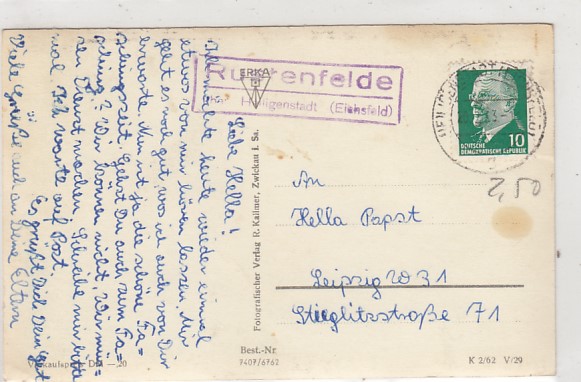 Liebe Hella!
Ich möchte heute wieder einmal
etwas von mir hören lassen. Mir
geht es noch gut, was ich auch von Dir
erwarte. Nun ist ja die schöne Fa=
schingszeit. Gehst Du auch zum Fa=
sching? Wir können nicht, wir müs=
sen Dienst machen. Schreibe mir bitte
mal. Ich warte auf Post.
Es grüßt Dich Dein
Viele Grüße auch an Deine Eltern
Verkaufspreis DM —,20
Fotografischer Verlag R. Kallmer, Zwickau i. Sa.
ERKA
Rustenfelde
Heiligenstadt (Eichsfeld)
DEUTSCHE
DEMOKRATISCHE REPUBLIK
10
2,50
An
Hella Papst
Leipzig W 31
Stieglitzstraße 71
Best.-Nr.
9407/6762
K 2/62 V/29